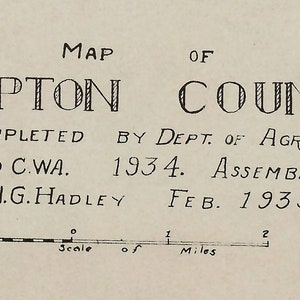 MAP OF
PTON COUN
MPLETED BY DEPT. OF AGR
C.W.A. 1934. ASSEMB
.G. HADLEY FEB. 193
0 1 2
Scale of Miles